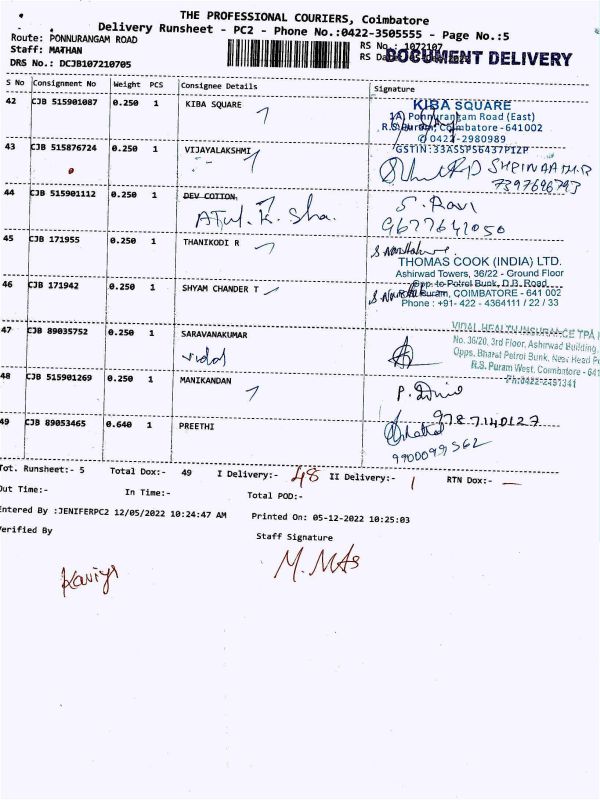 THE PROFESSIONAL COURIERS, Coimbatore
Delivery Runsheet - PC2 - Phone No.:0422-3505555 - Page No.:5
Route: PONNURANGAM ROAD
RS No.: 1072107
Staff: MATHAN
RS Da
DOCUMENT DELIVERY
DRS No.: DCJB107210705
S No Consignment No Weight PCS Consignee Details Signature
42 CJB 515901087 0.250 1 KIBA SQUARE
KIBA SQUARE
1A) Ponnurangam Road (East)
R.S.Puram, Coimbatore - 641 002
✆ 0422-2980989
GSTIN:33ASSPS6437P1ZP
43 CJB 515876724 0.250 1 VIJAYALAKSHMI
7397696793
44 CJB 515901112 0.250 1 DEV COTTON
Atul. K. Sha.
S. Ravi
9677641050
45 CJB 171955 0.250 1 THANIKODI R
THOMAS COOK (INDIA) LTD.
Ashirwad Towers, 36/22 - Ground Floor
Opp. to Petrol Bunk, D.B. Road
R.S. Puram, COIMBATORE - 641 002
Phone : +91- 422 - 4364111 / 22 / 33
46 CJB 171942 0.250 1 SHYAM CHANDER T
47 CJB 89035752 0.250 1 SARAVANAKUMAR
vidal
VIDAL HEALTH INSURANCE TPA
No. 36/20, 3rd Floor, Ashirwad Building,
Opps. Bharat Petrol Bunk, Near Head P
R.S. Puram West, Coimbatore - 641
Ph:0422-2491341
48 CJB 515901269 0.250 1 MANIKANDAN
9787140127
49 CJB 89053465 0.640 1 PREETHI
9900099562
Tot. Runsheet:- 5 Total Dox:- 49 I Delivery:- 48 II Delivery:- 1 RTN Dox:- —
Out Time:- In Time:- Total POD:-
Entered By :JENIFERPC2 12/05/2022 10:24:47 AM Printed On: 05-12-2022 10:25:03
Verified By Staff Signature
Kaviya